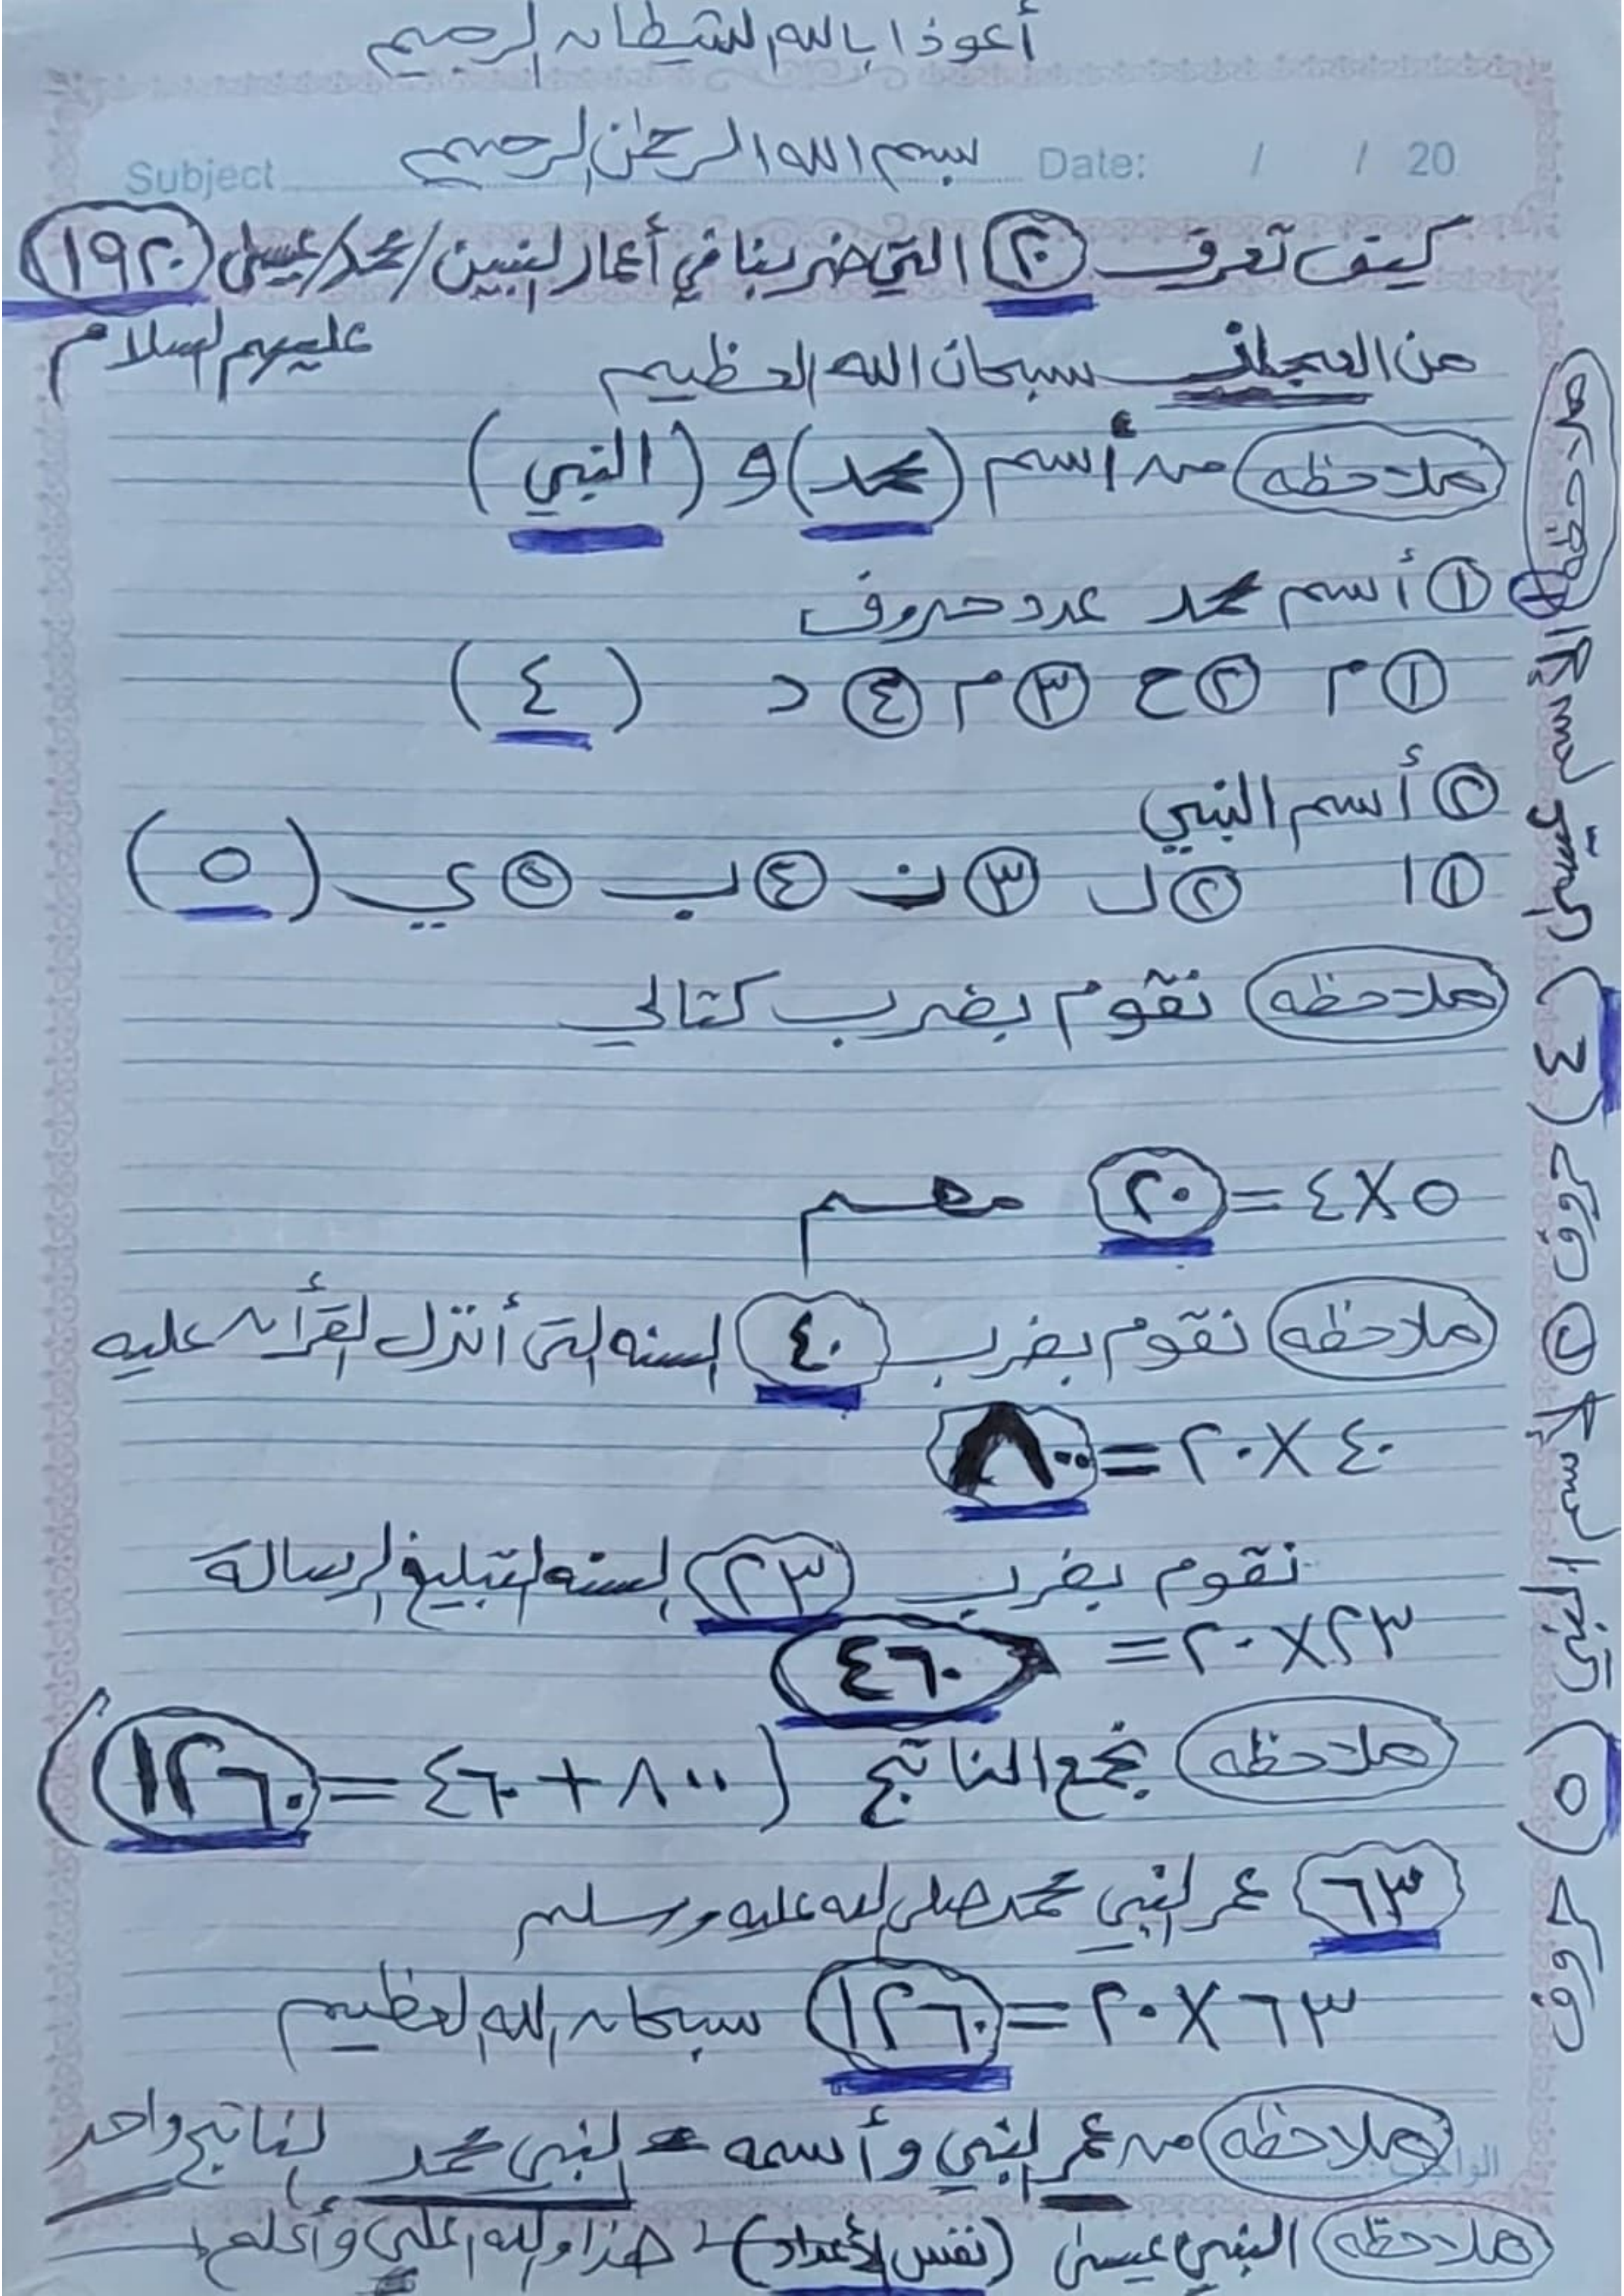 أعوذ بالله الشيطان الرجيم
بسم الله الرحمن الرحيم
Subject Date: / / 20
كيف تعرف (٢٠) التي ضربنا في أعمار النبيين/محمد/عيسى (١٩٢٠)
عليهم السلام
من العجائب سبحان الله العظيم
ملاحظه من أسم (محمد) و (النبي)
١ أسم محمد عدد حروف
١ م ٢ ح ٣ م ٤ د (٤)
٢ أسم النبي
١ ا ٢ ل ٣ ن ٤ ب ٥ ي (٥)
ملاحظه نقوم بضرب كتالي
٥ X ٤ = ٢٠ مهم
ملاحظه نقوم بضرب ٤٠ السنه التى أنزل القرأن عليه
٤٠ X ٢٠ = ٨٠٠
نقوم بضرب (٢٣) السنه لتبليغ الرسالة
٢٣ X ٢٠ = ٤٦٠
ملاحظه نجمع الناتج (٨٠٠ + ٤٦٠ = ١٢٦٠)
٦٣ عمر النبي محمد صلى الله عليه وسلم
٦٣ X ٢٠ = ١٢٦٠ سبحان الله العظيم
ملاحظه من عمر النبي وأسمه النبي محمد لناتج واحد
ملاحظه النبي عيسى (نفس الأعداد) هذا والله اعلي وأعلم
١ الإسم (٤) حرف ٢ الإسم (٥) حرف